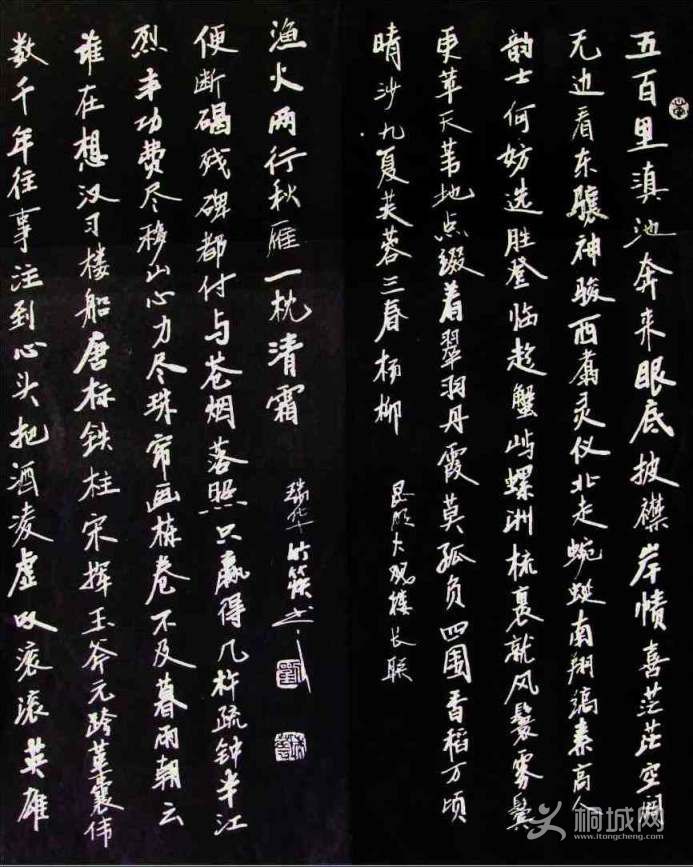 五百里滇池奔来眼底披襟岸帻喜茫茫空阔
无边看东骧神骏西翥灵仪北走蜿蜒南翔缟素高人
韵士何妨选胜登临趁蟹屿螺洲梳裹就风鬟雾鬓
更苹天苇地点缀着翠羽丹霞莫孤负四围香稻万顷
晴沙九夏芙蓉三春杨柳
昆明大观楼长联
数千年往事注到心头把酒凌虚叹滚滚英雄
谁在想汉习楼船唐标铁柱宋挥玉斧元跨革囊伟
烈丰功费尽移山心力尽珠帘画栋卷不及暮雨朝云
便断碣残碑都付与苍烟落照只赢得几杵疏钟半江
渔火两行秋雁一枕清霜
瑞华 书
桐城网
www.itongcheng.com